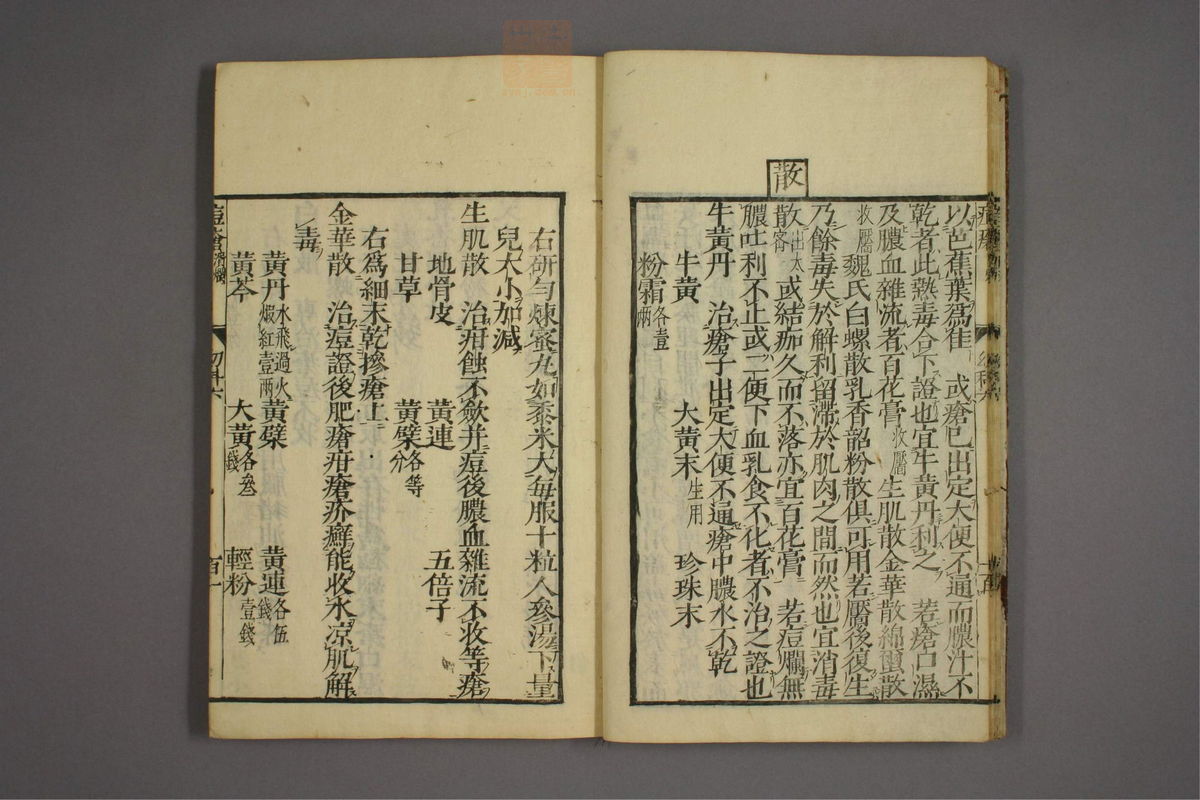 散
以芭蕉葉爲佳　或瘡已出定大便不通而膿汁不
乾者此熱毒合下證也宜牛黃丹利之　若瘡口濕
及膿血雜流者百花膏收靨生肌散金華散綿繭散
收靨魏氏白螺散乳香韶粉散俱可用若靨後復生
乃餘毒失於解利留滯於肌肉之間而然也宜消毒
散出太 或結痂久而不落亦宜百花膏　若痘爛無
膿吐利不止或二便下血乳食不化者不治之證也
牛黃丹　治瘡子出定大便不通瘡中膿水不乾
牛黃　大黃末生用　珍珠末
粉霜各壹兩
右研勻煉蜜丸如黍米大每服十粒人參湯下量
兒大小加減
生肌散　治疳蝕不斂并痘後膿血雜流不收等瘡
地骨皮　黃連　五倍子
甘草　黃檗各等分
右爲細末乾摻瘡上
金華散　治痘證後肥瘡疳瘡疥癬能收水凉肌解
毒
黃丹水飛過火煅紅壹兩　黃檗　黃連各伍錢
黃芩　大黃各叁錢　輕粉壹錢